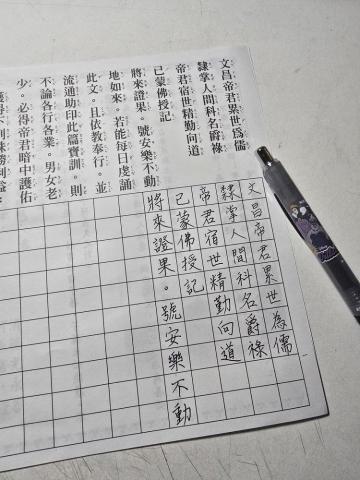 文昌帝君累世為儒
隸掌人間科名爵祿
帝君宿世精勤向道
已蒙佛授記
將來證果。號安樂不動
地如來。若能每日虔誦
此文。且依教奉行。並
流通助印此篇寶訓。則
不論各行各業。男女老
少。必得帝君暗中護佑
文昌帝君累世為儒
隸掌人間科名爵祿
帝君宿世精勤向道
已蒙佛授記
將來證果。號安樂不動